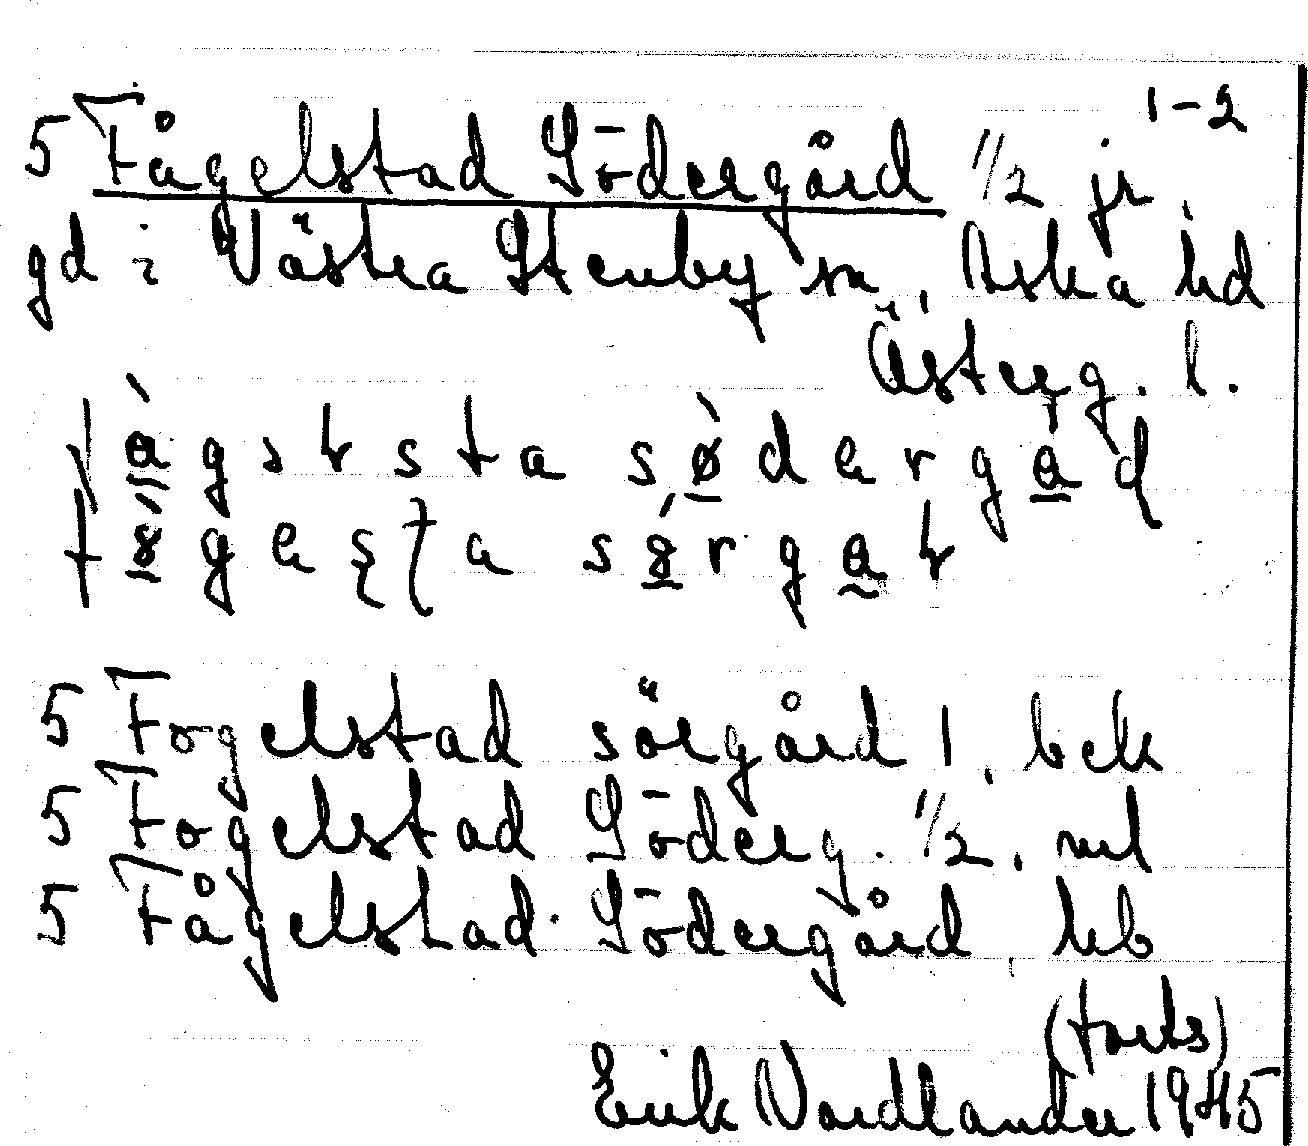 1-2
5 Fågelstad Södergård 1/2 jr
gd i Västra Stenby sn, Aska hd
Österg. l.
5 Fogelstad sörgård 1, bek
5 Fogelstad Söderg. 1/2, ml
5 Fågelstad Södergård, hb
(forts)
Erik Nordlander 1945